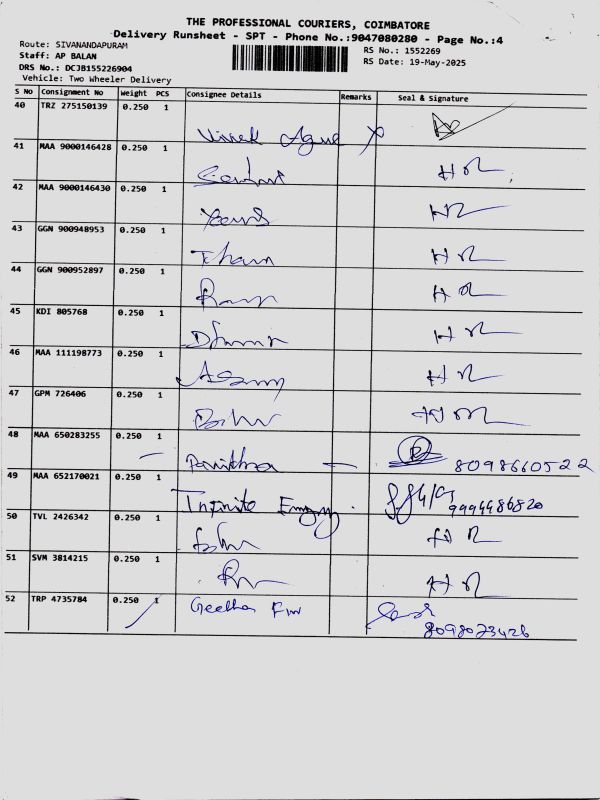 THE PROFESSIONAL COURIERS, COIMBATORE
Delivery Runsheet - SPT - Phone No.:9047080280 - Page No.:4
Route: SIVANANDAPURAM
Staff: AP BALAN
DRS No.: DCJB155226904
Vehicle: Two Wheeler Delivery
RS No.: 1552269
RS Date: 19-May-2025
S No Consignment No Weight PCS Consignee Details Remarks Seal & Signature
40 TRZ 275150139 0.250 1
41 MAA 9000146428 0.250 1 H R
42 MAA 9000146430 0.250 1 HR
43 GGN 900948953 0.250 1 H R
44 GGN 900952897 0.250 1 Ram H R
45 KDI 805768 0.250 1 H R
46 MAA 111198773 0.250 1 H R
47 GPM 726406 0.250 1
48 MAA 650283255 0.250 1 Pavithra 8098660522
49 MAA 652170021 0.250 1 Infinite 9994486820
50 TVL 2426342 0.250 1 H R
51 SVM 3814215 0.250 1 H R
52 TRP 4735784 0.250 1 Geetha Fin 8098023426